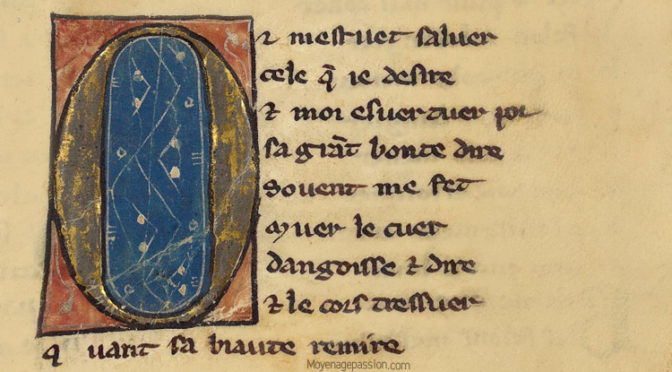 O
⁊ mestuet saluer
cele q̃ ie desire
⁊ moi esuertuer por
sa grãt bonte dire
Souent me fet
Muer le cuer
dangoisse ⁊ dire
⁊ le cors tressuer
q uant sa biaute remire
Moyenagepassion.com